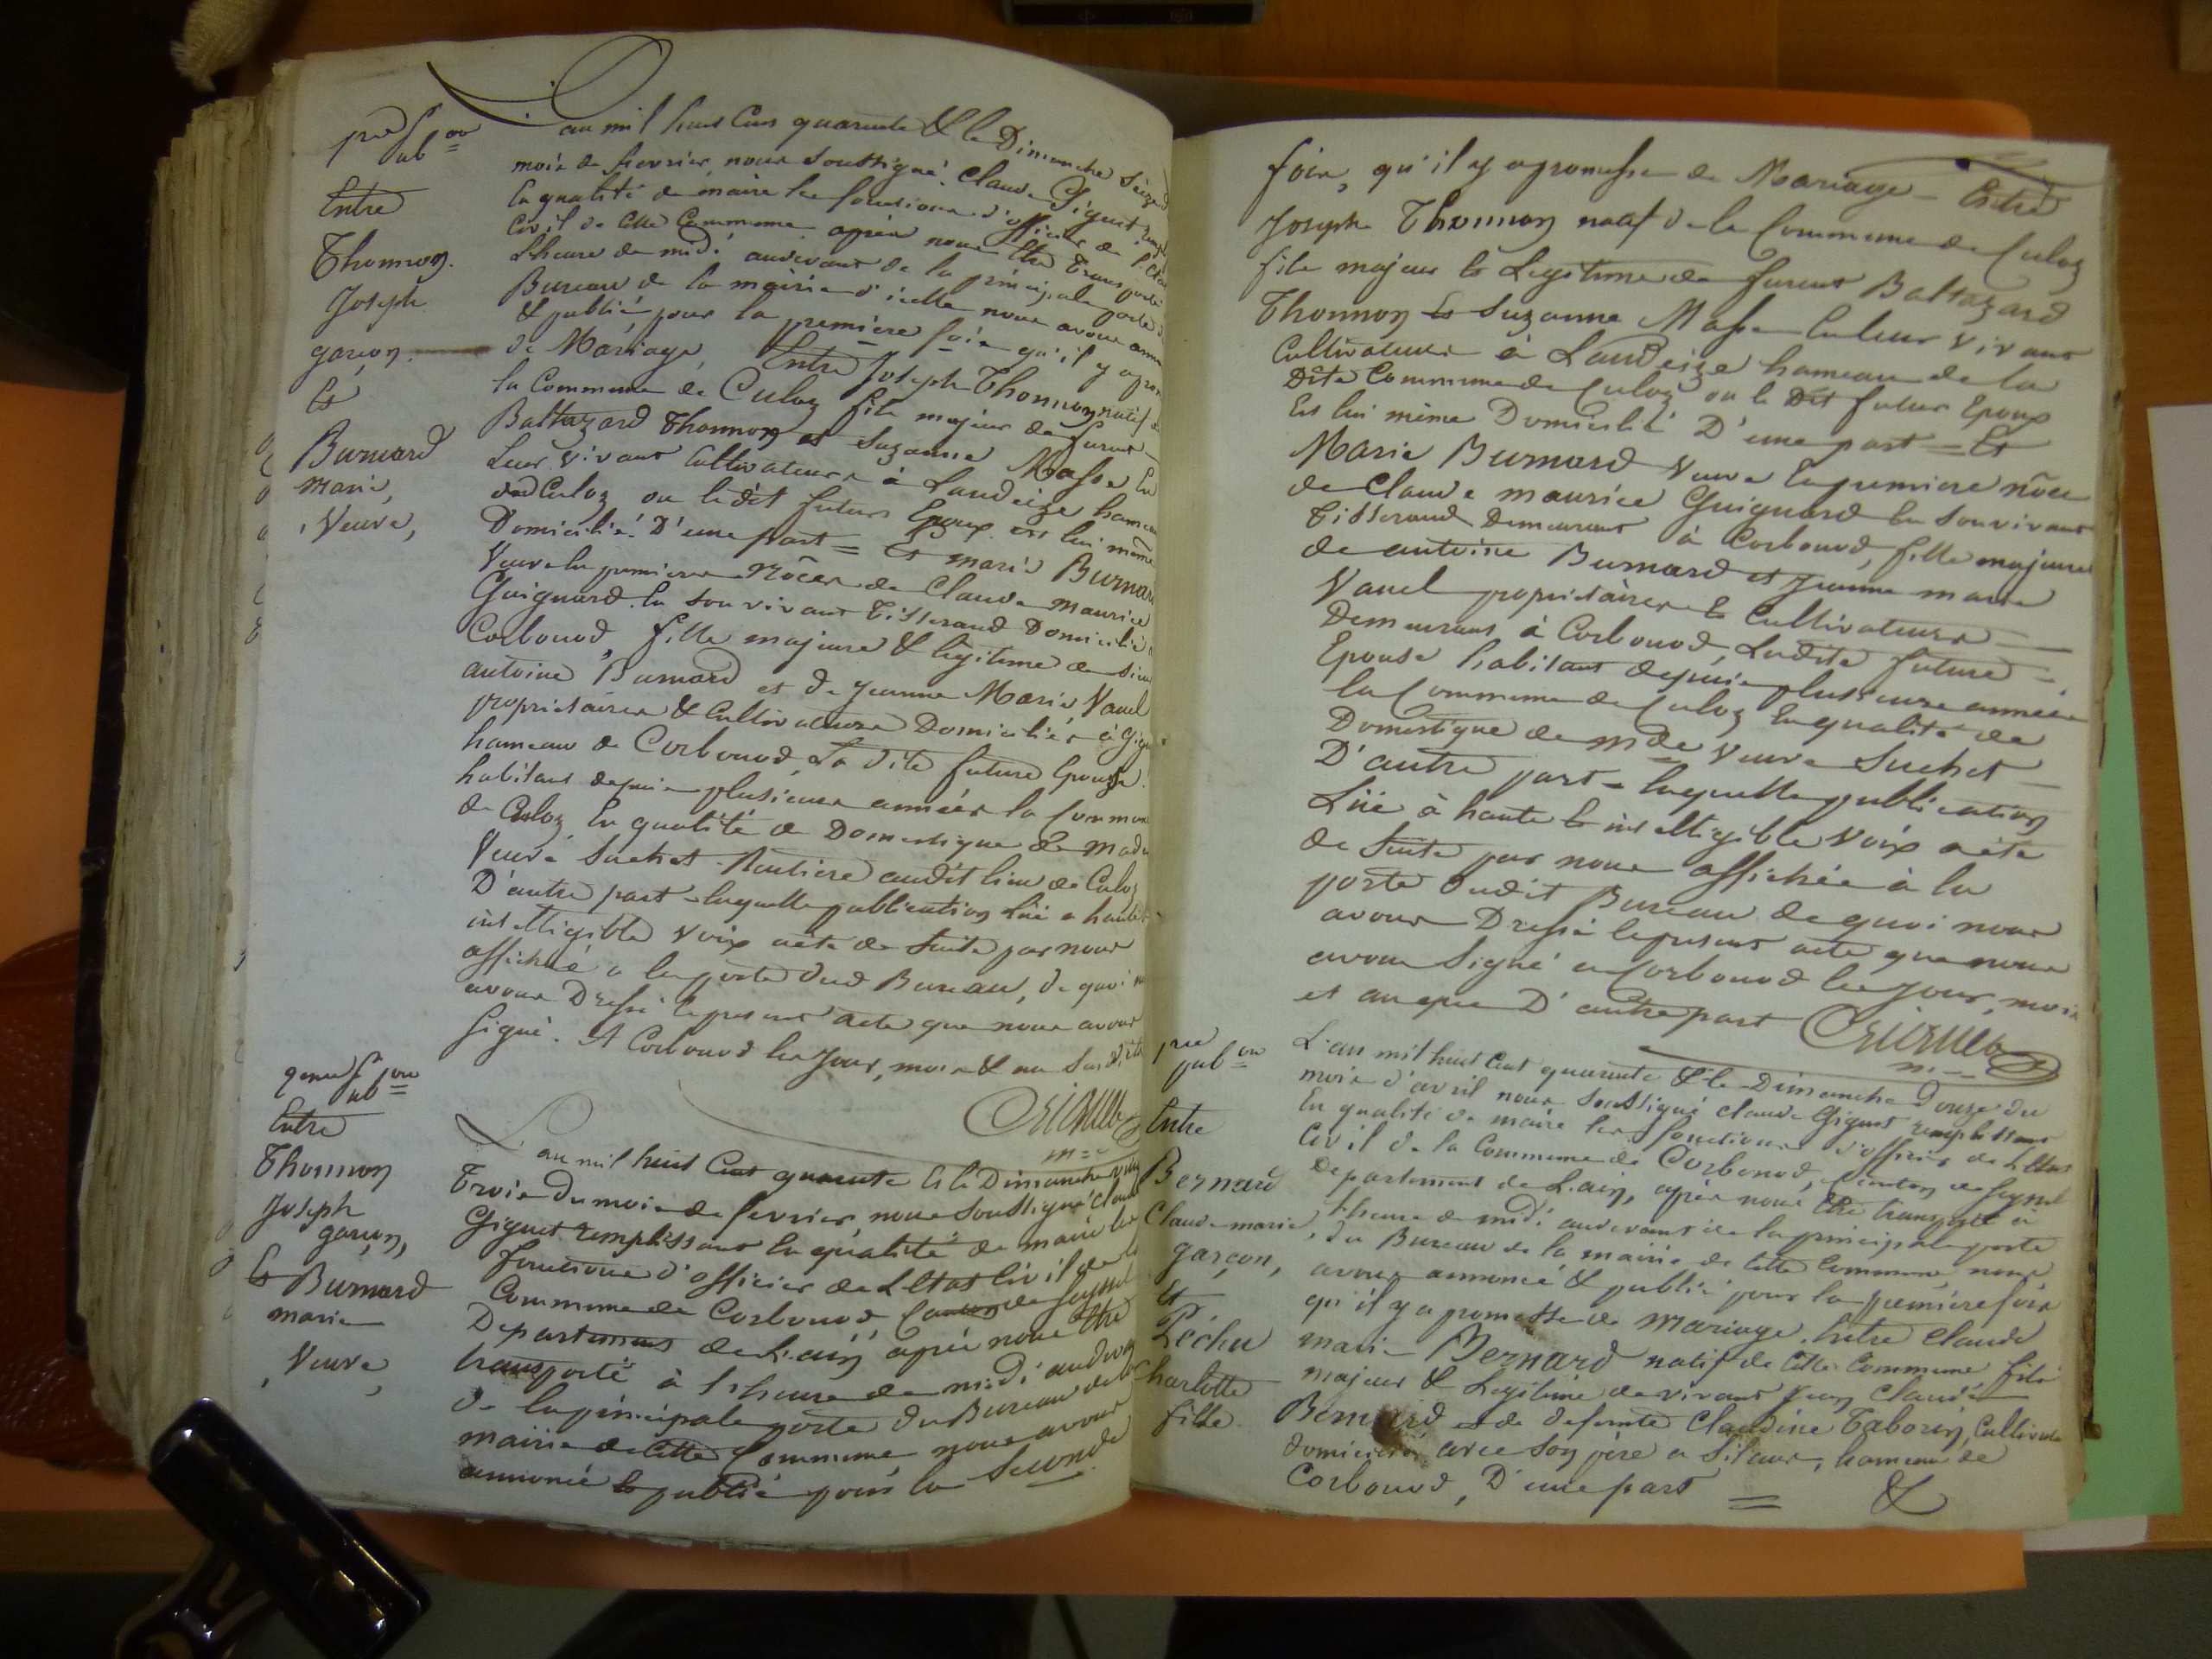 pre pub on
Entre
Thonnon
Joseph
garçon
Et
Burnard
Marie,
Veuve,
L'an mil huit Cens quarante & le Dimanche Seize
mois de fevrier, nous Soussigné Claude Giguet
la qualité de maire les fonctions d'officier de l'Etat
Civil de Cette Commune après nous être transporté
Lheure de midi audevant de la principale porte
Bureau de la mairie d'icelle nous avons
& publié pour la première fois qu'il y a
de Mariage, Entre Joseph Thonnon natif de
la Commune de Culoz fils majeur de furent
Baltazard Thonnon et Suzanne Masse En
Leur vivant Cultivateurs à Landeize hameau
dud Culoz ou le dit futur Epoux est lui même
Domicilié D'une part = Et marie Burnard
Veuve En premiere Nôces de Claude Maurice
Guignard En Son vivant Tisserand Domicilié
Corbonod, fille majeure & légitime de Sieur
antoine Burnard et de Jeanne Marie Vauel
propriétaires & Cultivateurs Domiciliés à
hameau de Corbonod, La dite future Epouse
habitant depuis plusieurs années la Commune
de Culoz En qualité de Domestique de
Veuve Suchet Rentiere audit lieu de Culoz
D'autre part - laquelle publication Lüe a haute
intelligible Voix aété de Suite par nous
affichée a la porte dud Bureau, de quoi
avons Dressé le présent acte que nous avons
Signé. A Corbonod les Jour, mois & an Susdits
pub on
Entre
Thonnon
Joseph
garçon,
Et Burnard
marie
Veuve,
L'an mil huit Cent quarante Et le Dimanche vingt
Trois du mois de fevrier, nous Soussigné Claude
Giguet remplissant En qualité de maire les
fonctions d'officier de LEtat Civil de
Commune de Corbonod Canton de Seyssel
Departement de L'ain après nous être
transporté à lheure de midi audevant
de la principale porte du Bureau de la
mairie de Cette Commune nous avons
annoncé Et publié pour la Seconde
fois, qu'il y a promesse de Mariage - Entre
Joseph Thonnon natif de la Commune de Culoz
fils majeur Et Legitime de furent Baltazard
Thonnon Et Suzanne Masse En leur vivant
Cultivateurs à Landeize hameau de la
Dite Commune de Culoz ou le Dit futur Epoux
Est lui même Domicilié D'une part = Et
Marie Burnard Veuve En premiere nôces
de Claude maurice Guignard En Son vivant
Tisserand Demeurant à Corbonod, fille majeure
de antoine Burnard et Jeanne marie
Vauel propriétaires Et Cultivateurs
Demeurant à Corbonod, Ladite future
Epouse habitant depuis plusieurs années
la Commune de Culoz En qualité de
Domestique de mde Veuve Suchet
D'autre part - laquelle publication
Lüe à haute Et intelligible Voix aété
de Suite par nous affichée à la
porte dudit Bureau de quoi nous
avons Dressé le present acte que nous
avons Signé a Corbonod les Jour, mois
et an que D'autre part
pre pub on
Entre
Bernard
Claude marie,
garçon,
Et
Péchu
Charlotte
fille
L'an mil huit Cent quarante & le Dimanche Douze du
mois d'avril nous Soussigné Claude Giguet remplissant
En qualité de maire les fonctions d'officier de LEtat
Civil de la Commune de Corbonod, Canton de Seyssel
Departement de L'ain, après nous être transporté a
Lheure de midi audevant de la principale porte
du Bureau de la mairie de Cette Commune nous
avons annoncé & publié pour la premiére fois
qu'il y a promesse de Mariage. Entre Claude
marie Bernard natif de Cette Commune fils
majeur & Legitime de vivant Jean Claude
Bernard et de defunte Claudine Taborin, Cultivateur
domicilié avec Son père a Silans, hameau de
Corbonod, D'une part = &